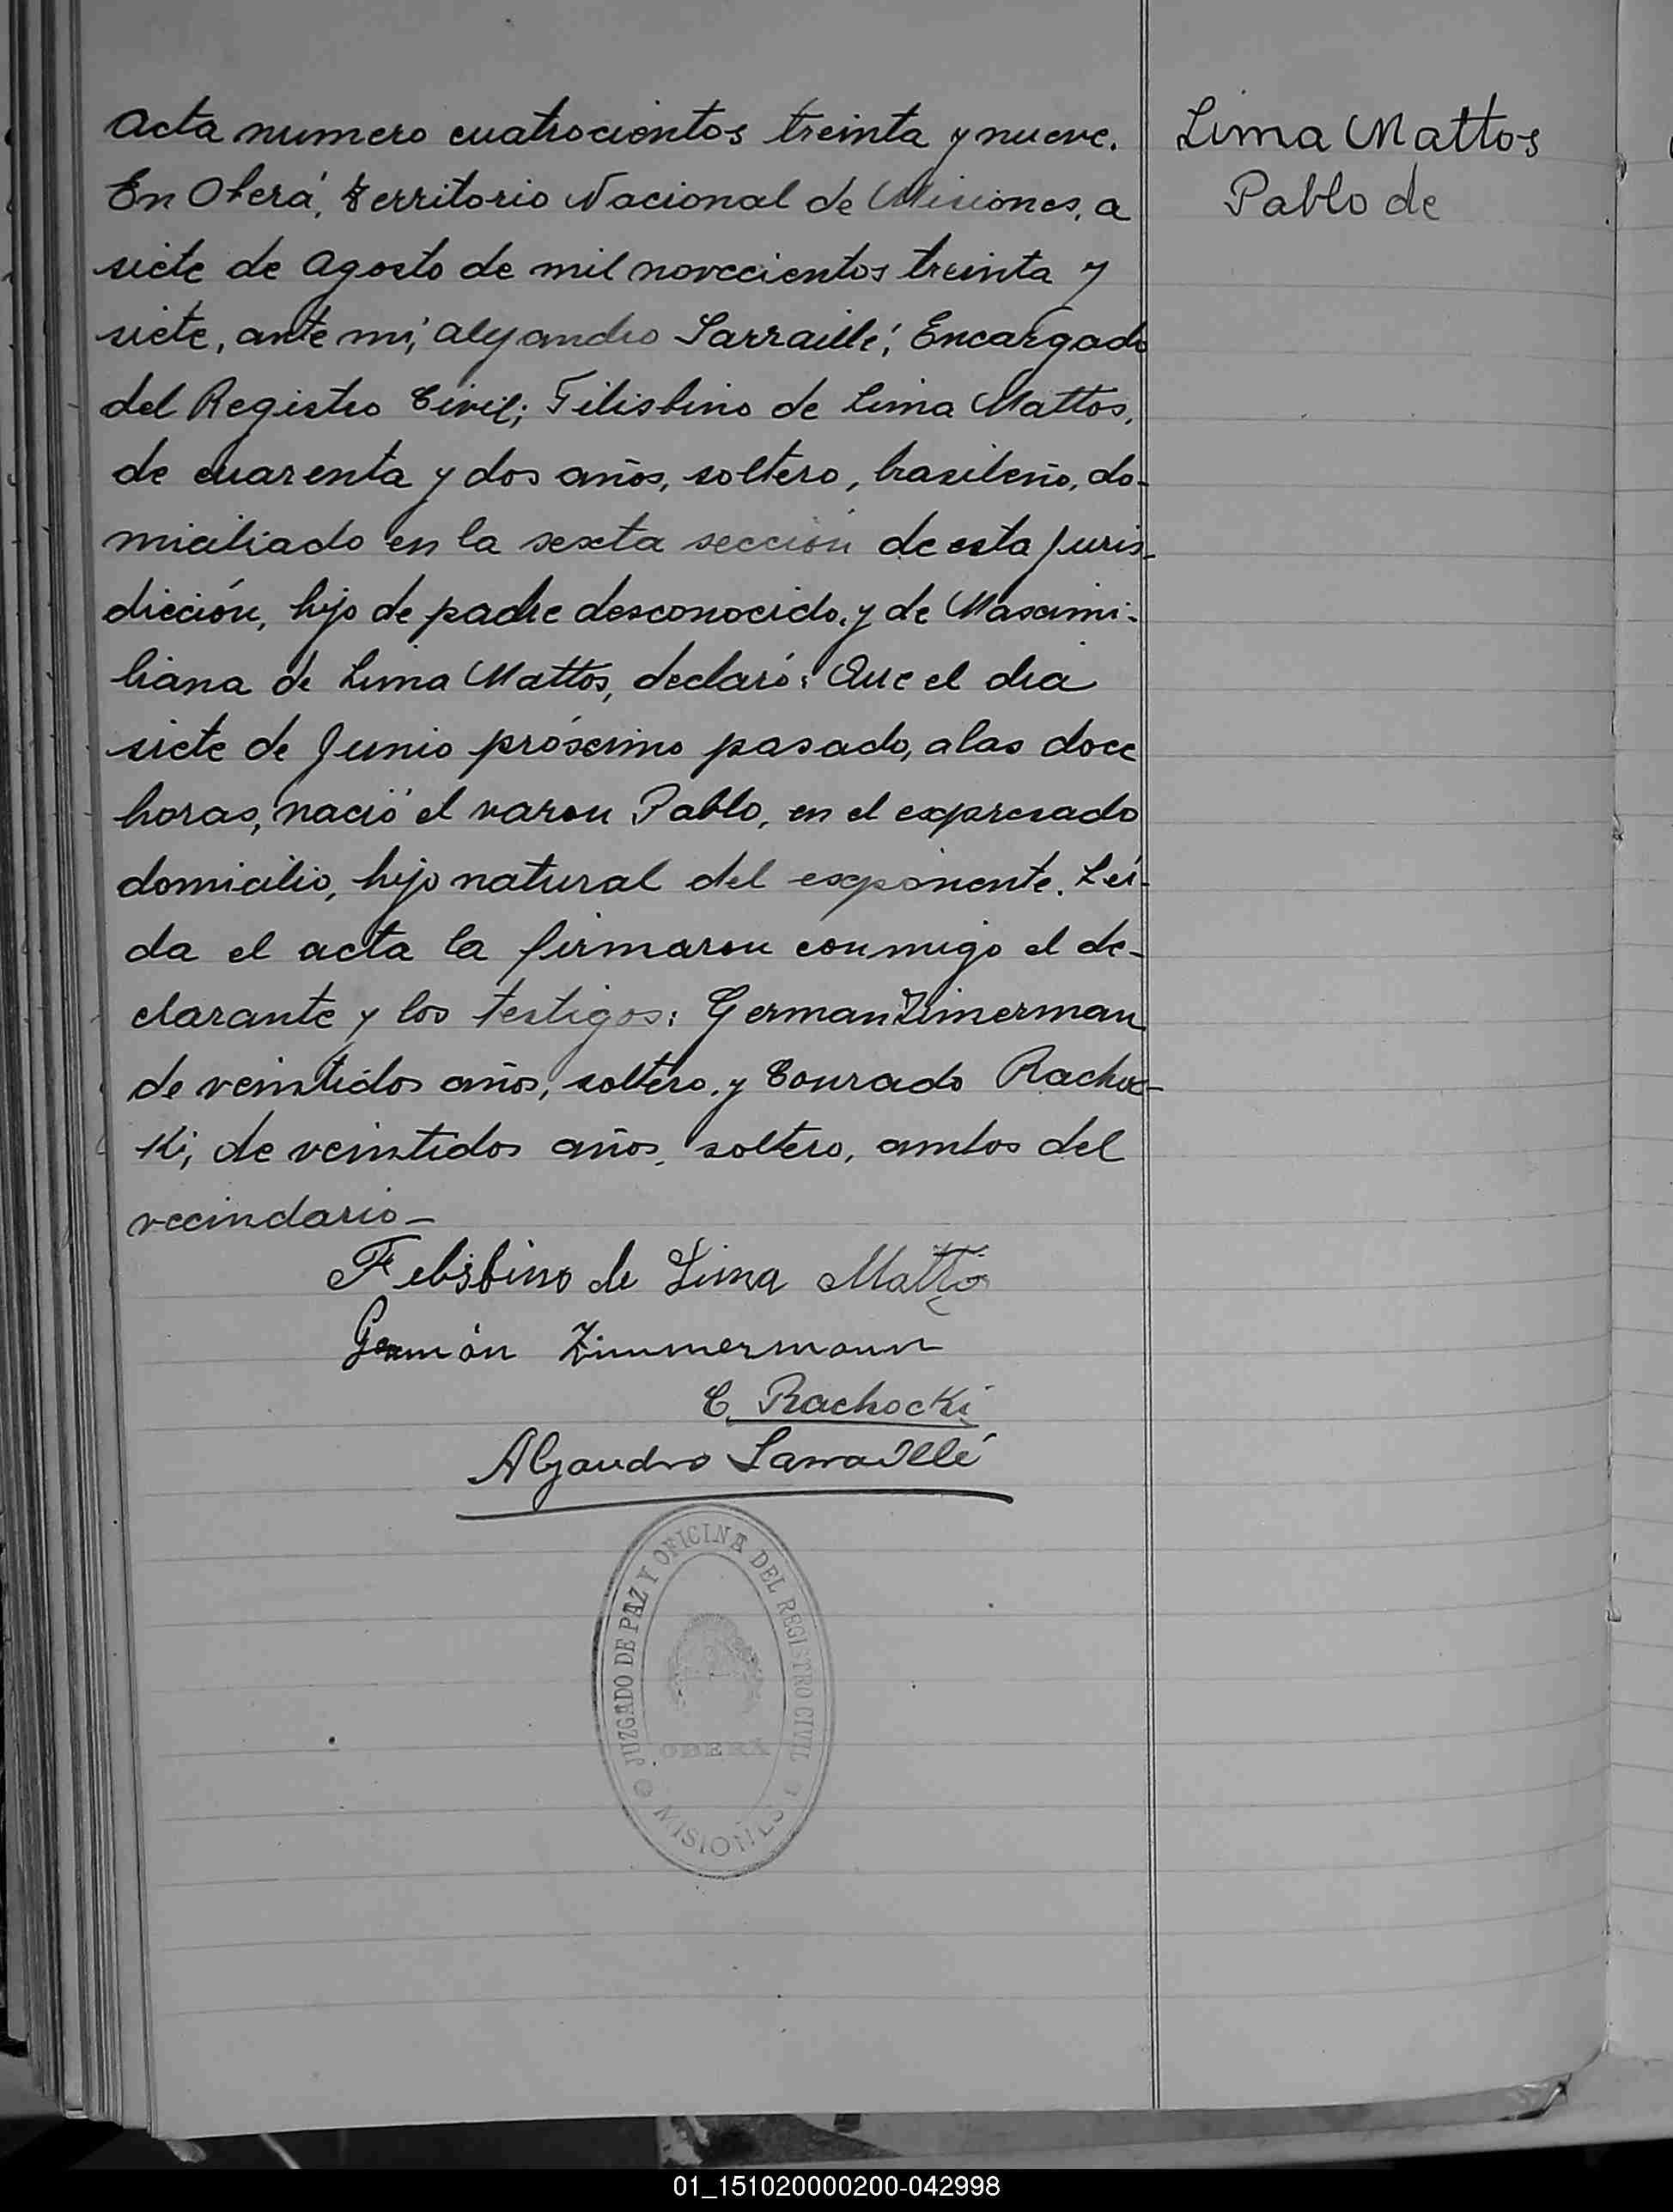 Acta numero cuatrocientos treinta y nueve.
En Oberá, territorio Nacional de Misiones, a
siete de Agosto de mil novecientos treinta y
siete, ante mí, Alejandro Sarraillé, Encargado
del Registro Civil; Filisbino de Lima Mattos,
de cuarenta y dos años, soltero, brasileño, do-
miciliado en la sexta sección de esta juris-
dicción, hijo de padre desconocido, y de Maximi-
liana de Lima Mattos, declaró: Que el dia
siete de Junio próximo pasado, a las doce
horas, nació el varon Pablo, en el expresado
domicilio, hijo natural del exponente. Leí-
da el acta la firmaron conmigo el de-
clarante y los testigos: German Zimerman
de veintidos años, soltero, y Conrado Rachoc-
ki, de veintidos años, soltero, ambos del
vecindario-
Felisbino de Lima Mattos
Germán Zimmermann
C. Rachocki
Alejandro Sarraillé
JUZGADO DE PAZ Y OFICINA DEL REGISTRO CIVIL
OBERA
MISIONES
Lima Mattos
Pablo de
01_151020000200-042998